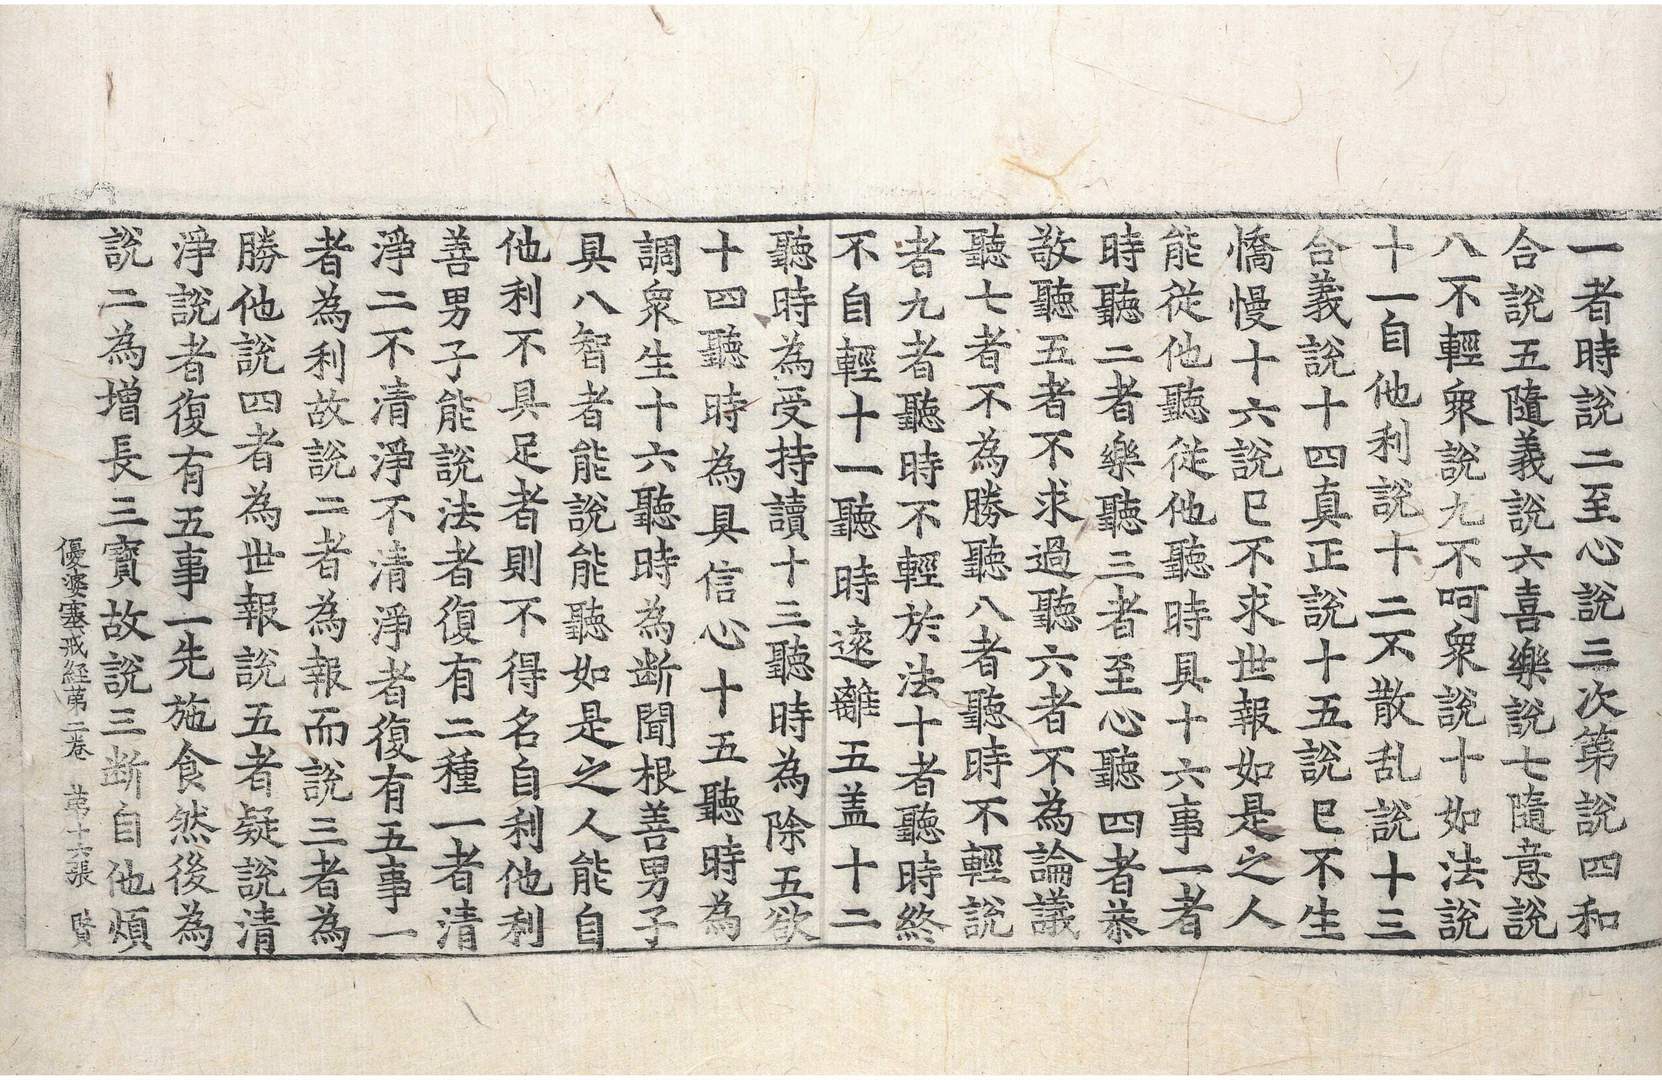 一者時說二至心說三次第說四和
合說五隨義說六喜樂說七隨意說
八不輕衆說九不呵衆說十如法說
十一自他利說十二不散乱說十三
合義說十四真正說十五說已不生
憍慢十六說已不求世報如是之人
能從他聽從他聽時具十六事一者
時聽二者樂聽三者至心聽四者恭
敬聽五者不求過聽六者不為論議
聽七者不為勝聽八者聽時不輕說
者九者聽時不輕於法十者聽時終
不自輕十一聽時遠離五盖十二
聽時為受持讀十三聽時為除五欲
十四聽時為具信心十五聽時為
調衆生十六聽時為斷聞根善男子
具八智者能說能聽如是之人能自
他利不具足者則不得名自利他利
善男子能說法者復有二種一者清
淨二不清淨不清淨者復有五事一
者為利故說二者為報而說三者為
勝他說四者為世報說五者疑說清
淨說者復有五事一先施食然後為
說二為增長三寶故說三断自他煩
優婆塞戒經第二卷 苐十六張 賢